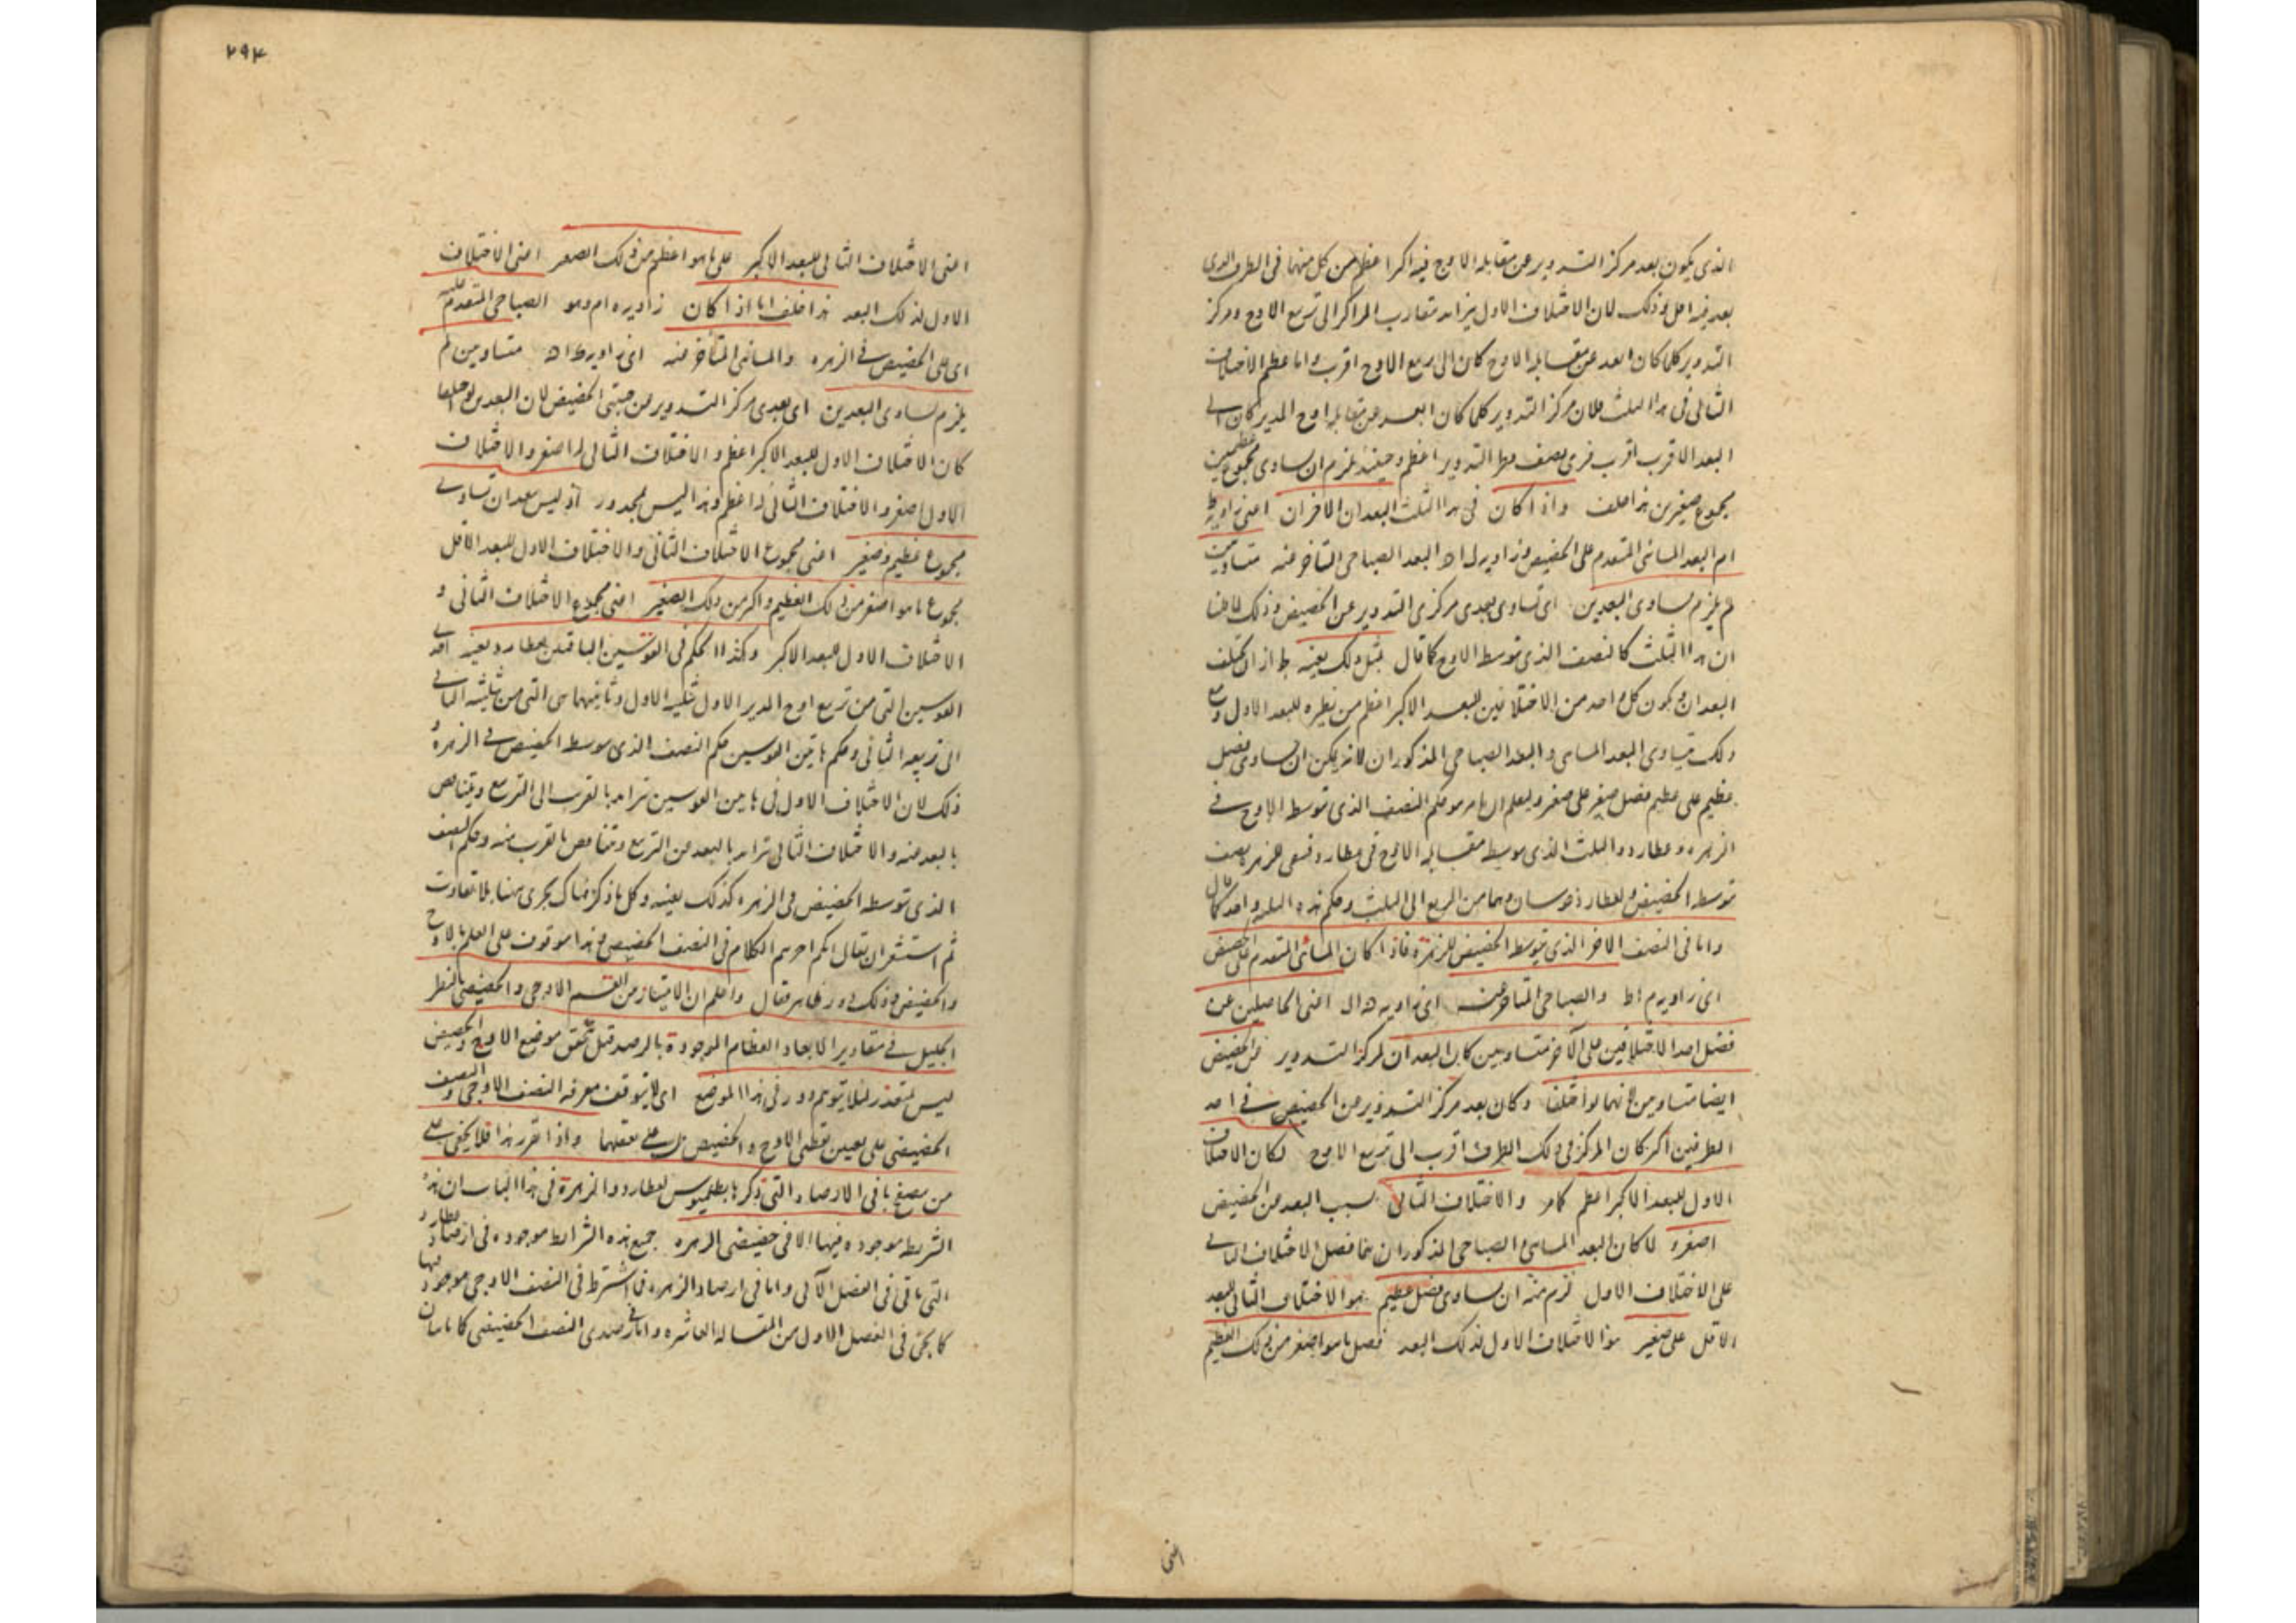 الذى يكون بعد مركز التدوير عن مقابلة الاوج فيه اكبر اعظم من كل منهما فى الطرف الذى
بعده فيه اقل وذلك لان الاختلاف الاول يتزايد بتقارب المراكز الى تربيع الاوج ومركز
التدوير كلما كان ابعد عن مقابلة الاوج كان الى تربيع الاوج اقرب واما عظم الاختلاف
الثانى فى هذا الثلث فلان مركز التدوير كلما كان ابعد عن مقابلة اوج المدير كان الى
البعد الاقرب اقرب فيرى نصف قطر التدوير اعظم وحينئذ يلزم ان يساوى مجموع عظيمين
مجموع صغيرين هذا خلف واذا كان فى هذا الثلث البعدان الاخران اعنى زاوية ط
ام البعد المسائى المتقدم على الحضيض وزاوية ل ا ه البعد الصباحى المتأخر عنه متساويين
لم يلزم تساوى البعدين اى تساوى بعدى مركزى التدوير عن الحضيض وذلك
ان هذا الثلث كالنصف الذى توسط الاوج كما قال مثل ذلك بعينه اذ ان اختلف
البعدان يكون كل واحد من الاختلافين للبعد الاكبر اعظم من نظيره للبعد الاول ومع
ذلك يتساوى البعد المسائى والبعد الصباحى المذكوران لانه يمكن ان يساوى فضل
عظيم على عظيم فضل صغير على صغير وليعلم ان ما مر هو حكم النصف الذى توسط الاوج فى
الزهرة وعطارد والثلث الذى توسط مقابلة الاوج فى عطارد فبقى للزهرة نصف
توسطه الحضيض ولعطارد قوسان وهما من الربع الى الثلث وحكم هذه الثلثة واحد كما قال
واما فى النصف الاخر الذى يتوسط الحضيض للزهرة فاذا كان المسائى المتقدم على الحضيض
اى زاوية م ا ط والصباحى المتأخر عنه اى زاوية ه ا ل اعنى الحاصلين عن
فضل احد الاختلافين على الآخر متساويين كان البعدان لمركز التدوير عن الحضيض
ايضا متساويين فانهما لو اختلفا وكان بعد مركز التدوير عن الحضيض فى احد
الطرفين اكبر كان المركز فى ذلك الطرف اقرب الى تربيع الاوج لكان الاختلاف
الاول للبعد الاكبر اعظم كما مر والاختلاف الثانى بسبب البعد من الحضيض
اصغر ولما كان البعد المسائى والصباحى المذكوران هما فضل الاختلاف الثانى
على الاختلاف الاول لزم منه ان يساوى فضل عظيم هو الاختلاف الثانى للبعد
الاقل على صغير هو الاختلاف الاول لذلك البعد فضل ما هو اصغر من ذلك العظيم
اعنى
٢٩٣
اعنى الاختلاف الثانى للبعد الاكبر على ما هو اعظم من ذلك الصغير اعنى الاختلاف
الاول لذلك البعد هذا خلف اما اذا كان زاوية ه ا م وهو الصباحى المتقدم عليه
اى على الحضيض فى الزهرة والمسائى المتأخر عنه اى زاوية ط ا ه متساويين لم
يلزم تساوى البعدين اى بعدى مركز التدوير من جنبتى الحضيض لان البعدين لو اختلفا
كان الاختلاف الاول للبعد الاكبر اعظم والاختلاف الثانى له اصغر والاختلاف
الاول اصغر والاختلاف الثانى له اعظم وهذا ليس بمحذور اذ ليس ببعد ان تساوى
مجموع عظيم وصغير اعنى مجموع الاختلاف الثانى والاختلاف الاول للبعد الاقل
مجموع ما هو اصغر من ذلك العظيم واكبر من ذلك الصغير اعنى مجموع الاختلاف الثانى و
الاختلاف الاول للبعد الاكبر وكذا الحكم فى القوسين الباقيتين لعطارد بعينه احدى
القوسين التى من تربيع اوج المدير الاول الى تثليثه الاول وثانيهما هى التى من تثليثه الثانى
الى تربيعه الثانى وحكم هاتين القوسين حكم النصف الذى توسطه الحضيض فى الزهرة و
ذلك لان الاختلاف الاول فى هاتين القوسين تزايد بالقرب الى التربيع ويتناقص
بالبعد منه والاختلاف الثانى تزايد بالبعد من التربيع وتناقص بالقرب منه وحكم النصف
الذى توسطه الحضيض فى الزهرة كذلك بعينه وكل ما ذكر هناك يجرى ههنا بلا تفاوت
ثم استشعر ان يقال انكم اجريتم الكلام فى النصف الحضيضى وهذا موقوف على العلم بالاوج
والحضيض وذلك دور ظاهر فقال واعلم ان الامتياز من القسم الاوجى والحضيضى بالنظر
الجليل فى مقادير الابعاد العظام الموجودة بالرصد قبل تحقق موضع الاوج والحضيض
ليس بمتعذر لئلا يتوهم دور فى هذا الموضع اى لا يتوقف معرفة النصف الاوجى والنصف
الحضيضى على تعيين نقطتى الاوج والحضيض بل على تعقلهما واذا تقرر هذا فلا يخفى على
من تصفح باقى الارصاد التى ذكرها بطلميوس لعطارد والزهرة فى هذا الباب ان هذه
الشريط موجودة فيها الا فى حضيضى الزهرة جميع هذه الشرايط موجودة فى ارصاد عطارد
التى تأتى فى الفصل الآتى واما فى ارصاد الزهرة فما اشترط فى النصف الاوجى موجود فيها
كما يجئ فى الفصل الاول من المقالة العاشرة واما فى رصدى النصف الحضيضى